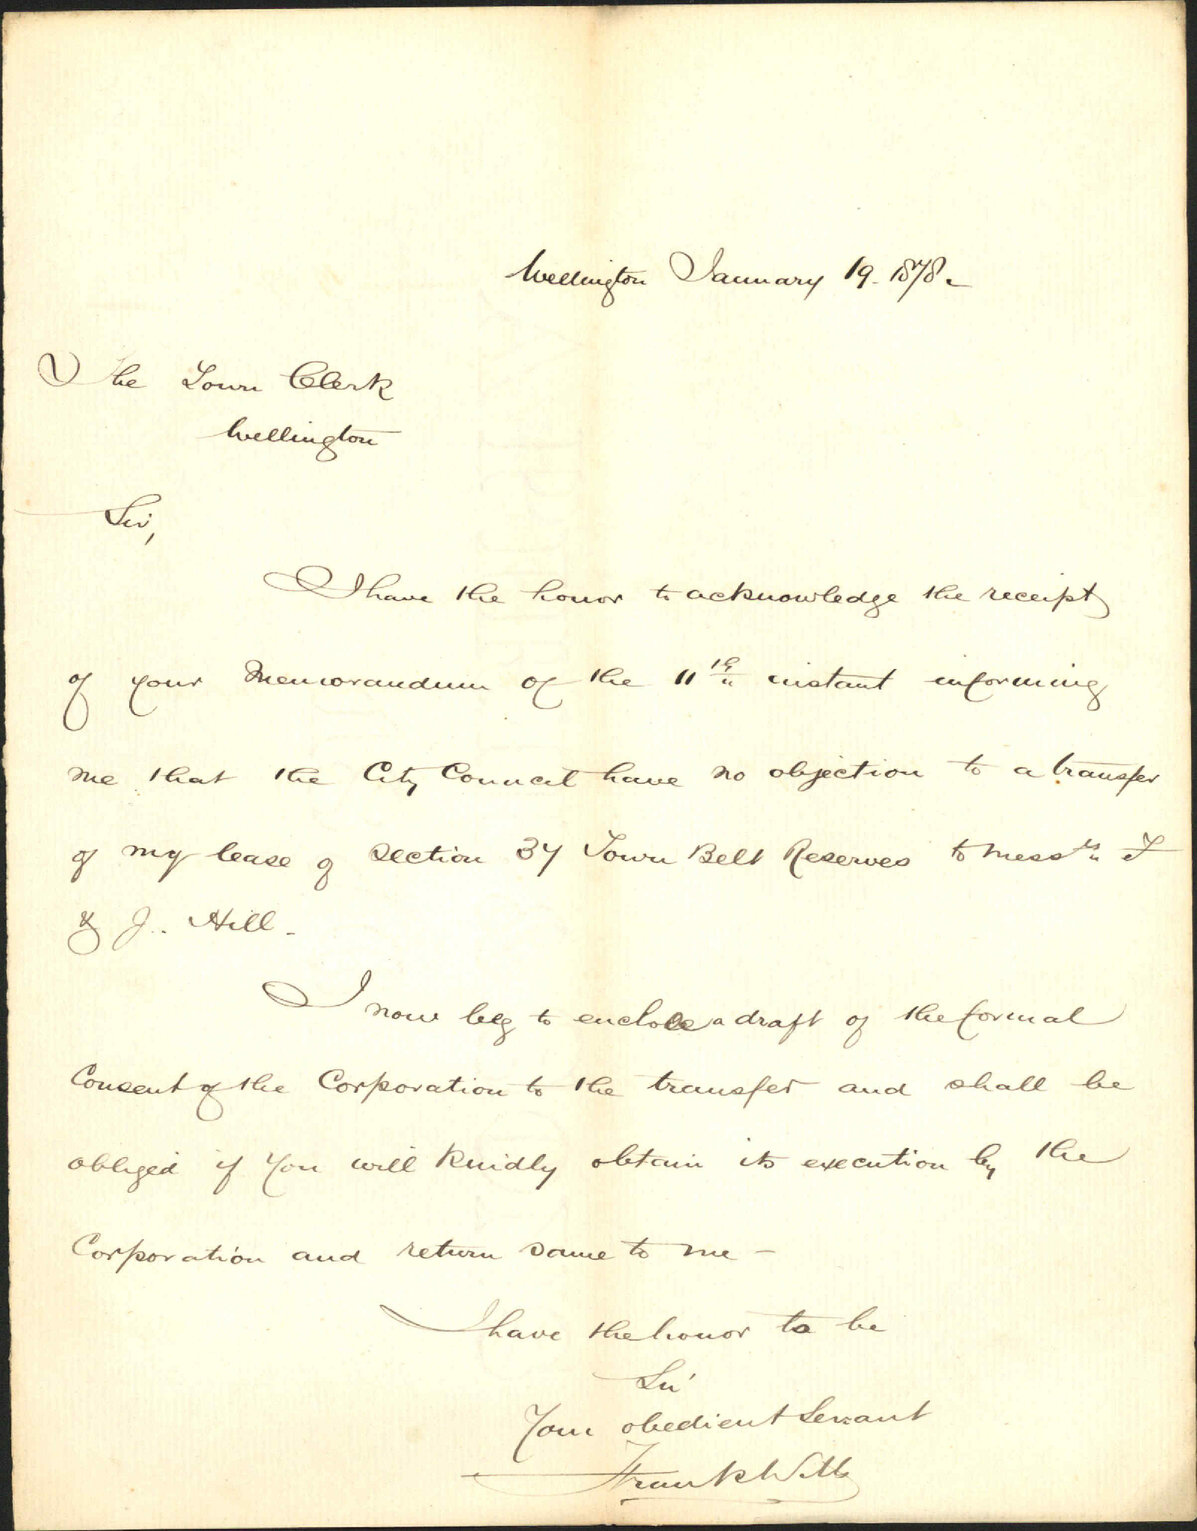 Wellington January 19. 1878.
The Town Clerk
Wellington
Sir,
I have the honor to acknowledge the receipt
of your Memorandum of the 11th instant informing
me that the City Council have no objection to a transfer
of my lease of Section 37 Town Belt Reserves to Messrs
& J. Hill.
I now beg to enclose a draft of the formal
Consent of the Corporation to the transfer and shall be
obliged if you will kindly obtain its execution by the
Corporation and return same to me -
I have the honor to be
Sir
Your obedient Servant
Frank